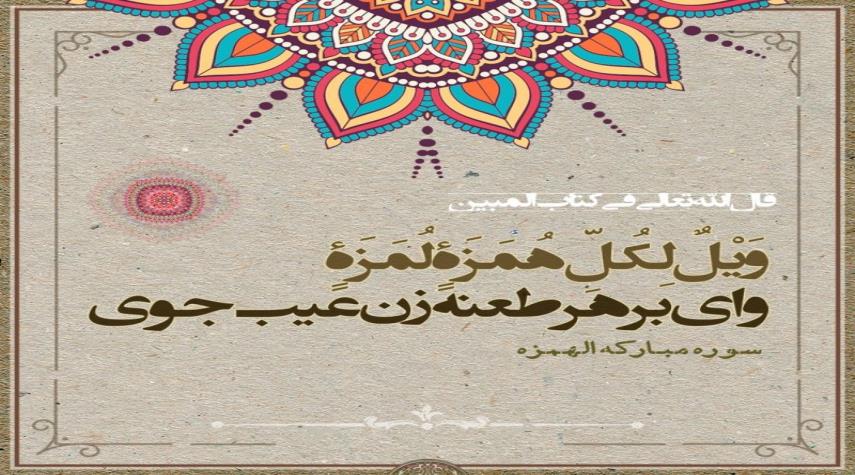 قال الله تعالی فی کتاب المبین
وَيْلٌ لِكُلِّ هُمَزَةٍ لُمَزَةٍ
وای بر هر طعنه زن عیب جوی
سوره مبارکه الهمزه